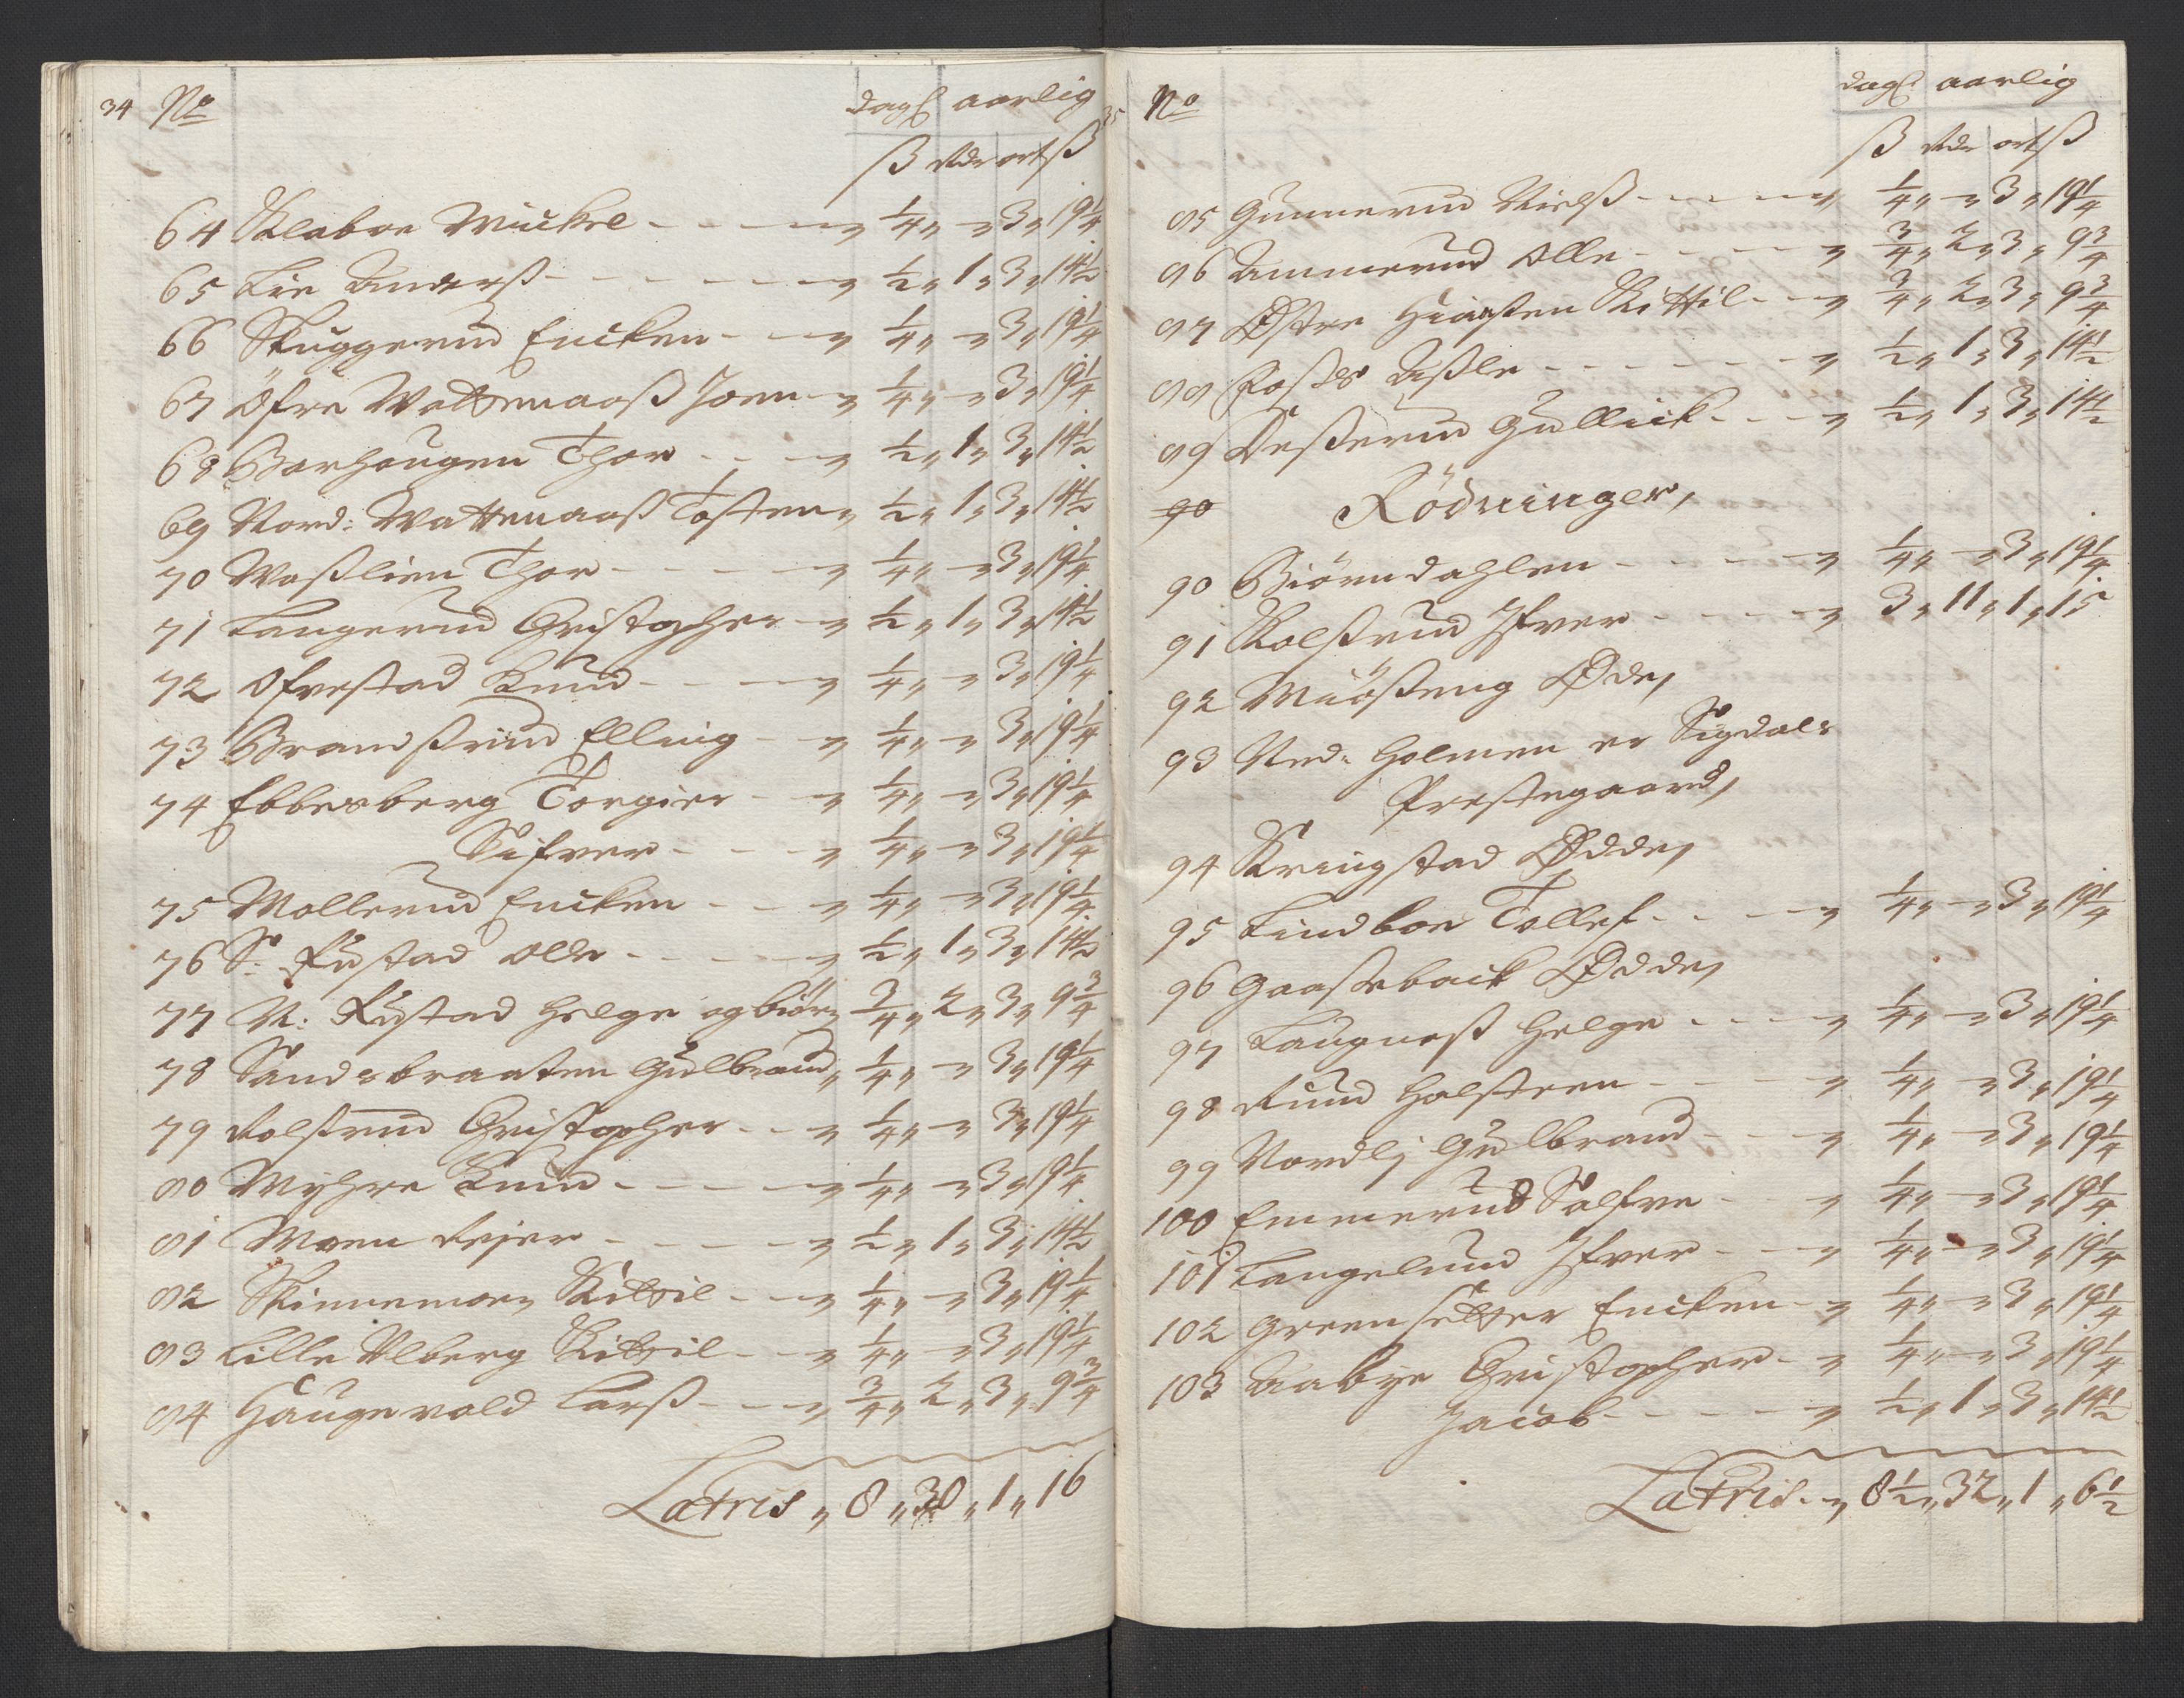 34 No dagl aarlig
ß Rdr ort ß
64 Klaboe Mickel - - - - „ 1/4 „ - „ 3 „ 19 1/4
65 Lie Anderß - - - - - „ 1/2 „ 1 „ 3 „ 14 1/2
66 Skuggerud Encken - - „ 1/4 „ - „ 3 „ 19 1/4
67 Öfre Wattenaaß Joen - „ 1/4 „ - „ 3 „ 19 1/4
68 Borhougen Thor - - - „ 1/2 „ 1 „ 3 „ 14 1/2
69 Nord: Wattenaaß Tosten „ 1/2 „ 1 „ 3 „ 14 1/2
70 Waßlien Thor - - - - „ 1/4 „ - „ 3 „ 19 1/4
71 Langerud Christopher - „ 1/2 „ 1 „ 3 „ 14 1/2
72 Ofvestad Knud - - - - „ 1/4 „ - „ 3 „ 19 1/4
73 Bramstrud Elling - - „ 1/4 „ - „ 3 „ 19 1/4
74 Ebbesberg Torgier - - „ 1/4 „ - „ 3 „ 19 1/4
Sifver - - - „ 1/4 „ - „ 3 „ 19 1/4
75 Mollerud Encken - - „ 1/4 „ - „ 3 „ 19 1/4
76 S: Rustad Olle - - - - „ 1/2 „ 1 „ 3 „ 14 1/2
77 N: Rustad Helge og Biör „ 3/4 „ 2 „ 3 „ 9 3/4
78 Sandsbraaten Gulbrand „ 1/4 „ - „ 3 „ 19 1/4
79 Rolstrud Christopher - - „ 1/4 „ - „ 3 „ 19 1/4
80 Myhre Knud - - - - „ 1/4 „ - „ 3 „ 19 1/4
81 Moen Reier - - - - - „ 1/2 „ 1 „ 3 „ 14 1/2
82 Skinnemoen Kittil - - „ 1/4 „ - „ 3 „ 19 1/4
83 Lille Ulberg Kittil - - „ 1/4 „ - „ 3 „ 19 1/4
84 Haugevold Larß - - „ 3/4 „ 2 „ 3 „ 9 3/4
Latris „ 8 „ 30 „ 1 „ 16
35 No dagl aarlig
ß Rdr ort ß
85 Gunnerud Nielß - - - - „ 1/4 „ - „ 3 „ 19 1/4
86 Ammerud Olle - - - - „ 3/4 „ 2 „ 3 „ 9 3/4
87 Østre Hiasten Kittil - - „ 3/4 „ 2 „ 3 „ 9 3/4
88 Aßle - - - - - „ 1/2 „ 1 „ 3 „ 14 1/2
89 Deßerud Gullick - - - „ 1/2 „ 1 „ 3 „ 14 1/2
90 Rödninger,
90 Biörndahlen - - - - „ 1/4 „ - „ 3 „ 19 1/4
91 Kolsrud Ifver - - - - „ 3 „ 11 „ 1 „ 15
92 Miösteng Øde,
93 Ned: Holmen er Sigdals
Prestegaard,
94 Kringstad Ødde,
95 Lindboe Tollef - - - - „ 1/4 „ - „ 3 „ 19 1/4
96 Gaasebaick Ødde,
97 Laugneß Helge - - - - „ 1/4 „ - „ 3 „ 19 1/4
98 Ruud Holsteen - - - - „ 1/4 „ - „ 3 „ 19 1/4
99 Nordlj Gulbrand - - - „ 1/4 „ - „ 3 „ 19 1/4
100 Emmerud Solfve - - „ 1/4 „ - „ 3 „ 19 1/4
101 Langelund Ifver - - - „ 1/4 „ - „ 3 „ 19 1/4
102 Green Setter Encken - „ 1/4 „ - „ 3 „ 19 1/4
103 Aabye Christopher - - „ 1/4 „ - „ 3 „ 19 1/4
Jacob - - - - - „ 1/2 „ 1 „ 3 „ 14 1/2
Latris - „ 8 1/2 „ 32 „ 1 „ 6 1/2